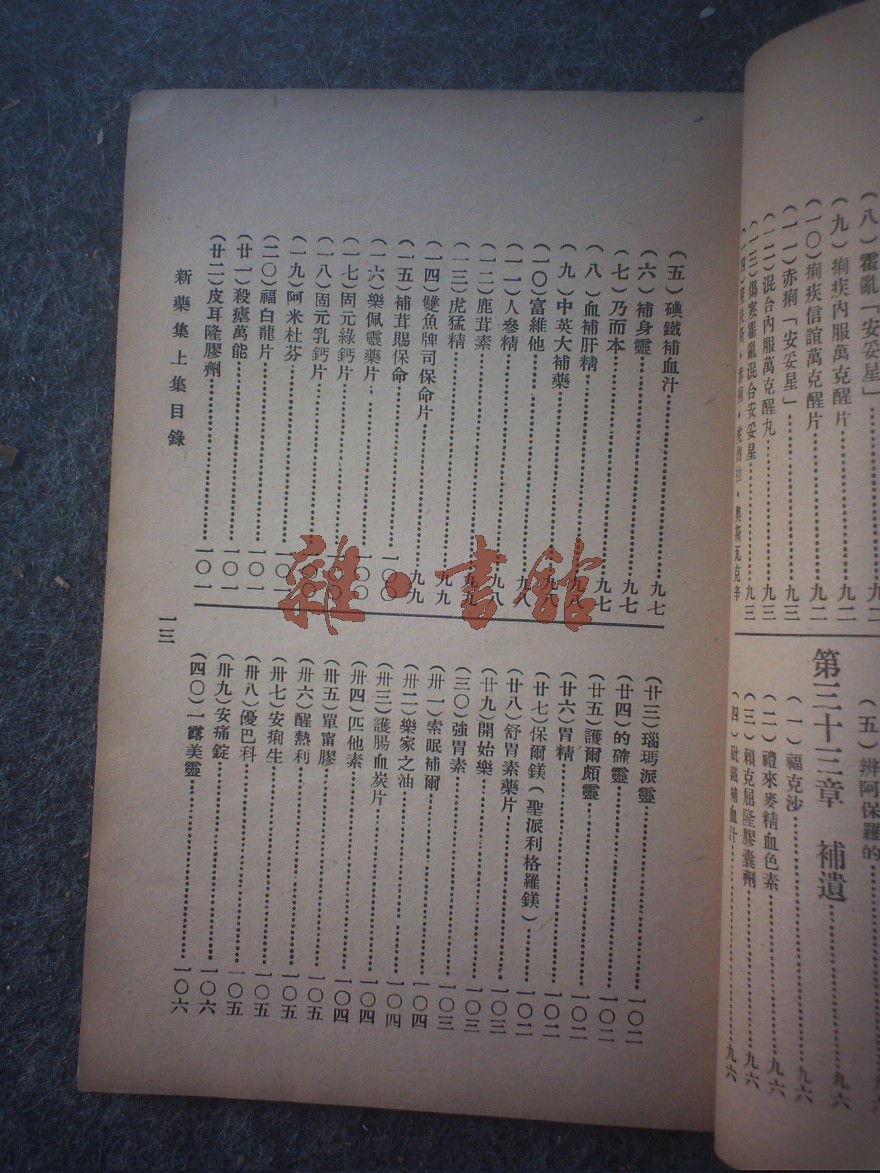 (八)霍亂「安妥星」……九二
(九)痢疾內服萬克醒片……九二
(一〇)痢疾信誼萬克醒片……九二
(一一)赤痢「安妥星」……九三
(一二)混合內服萬克醒丸……九三
(一三)傷寒霍亂混合安妥星……九三
奧斯瓦克辛
(五)辨阿保羅的……九六
第三十三章 補遺……九六
(一)福克沙……九六
(二)禮來麥精血色素……九六
(三)賴克屈隆膠囊劑……九六
(四)砒鐵補血汁……九六
(五)碘鐵補血汁……九七
(六)補身靈……九七
(七)乃而本……九七
(八)血補肝精……九八
(九)中英大補藥……九八
(一〇)富維他……九八
(一一)人參精……九八
(一二)鹿茸素……九九
(一三)虎猛精……九九
(一四)雙魚牌司保命片……九九
(一五)補茸賜保命……一〇〇
(一六)樂佩靈藥片……一〇〇
(一七)固元綠鈣片……一〇〇
(一八)固元乳鈣片……一〇〇
(一九)阿米杜芬……一〇一
(二〇)福白龍片……一〇一
(廿一)殺瘧萬能……一〇一
(廿二)皮耳隆膠劑……一〇一
(廿三)瑙瑪派靈……一〇二
(廿四)的確靈……一〇二
(廿五)護爾頗靈……一〇二
(廿六)胃精……一〇二
(廿七)保爾鎂(聖派利格羅鎂)……一〇二
(廿八)舒胃素藥片……一〇三
(廿九)開始樂……一〇三
(三〇)強胃素……一〇三
(卅一)索眠補爾……一〇四
(卅二)樂家之油……一〇四
(卅三)護腸血炭片……一〇四
(卅四)匹他素……一〇四
(卅五)單甯膠……一〇五
(卅六)醒熱利……一〇五
(卅七)安痢生……一〇五
(卅八)優巴科……一〇五
(卅九)安痛錠……一〇六
(四〇)一露美靈……一〇六
新藥集上集目錄
一三
雜·書館